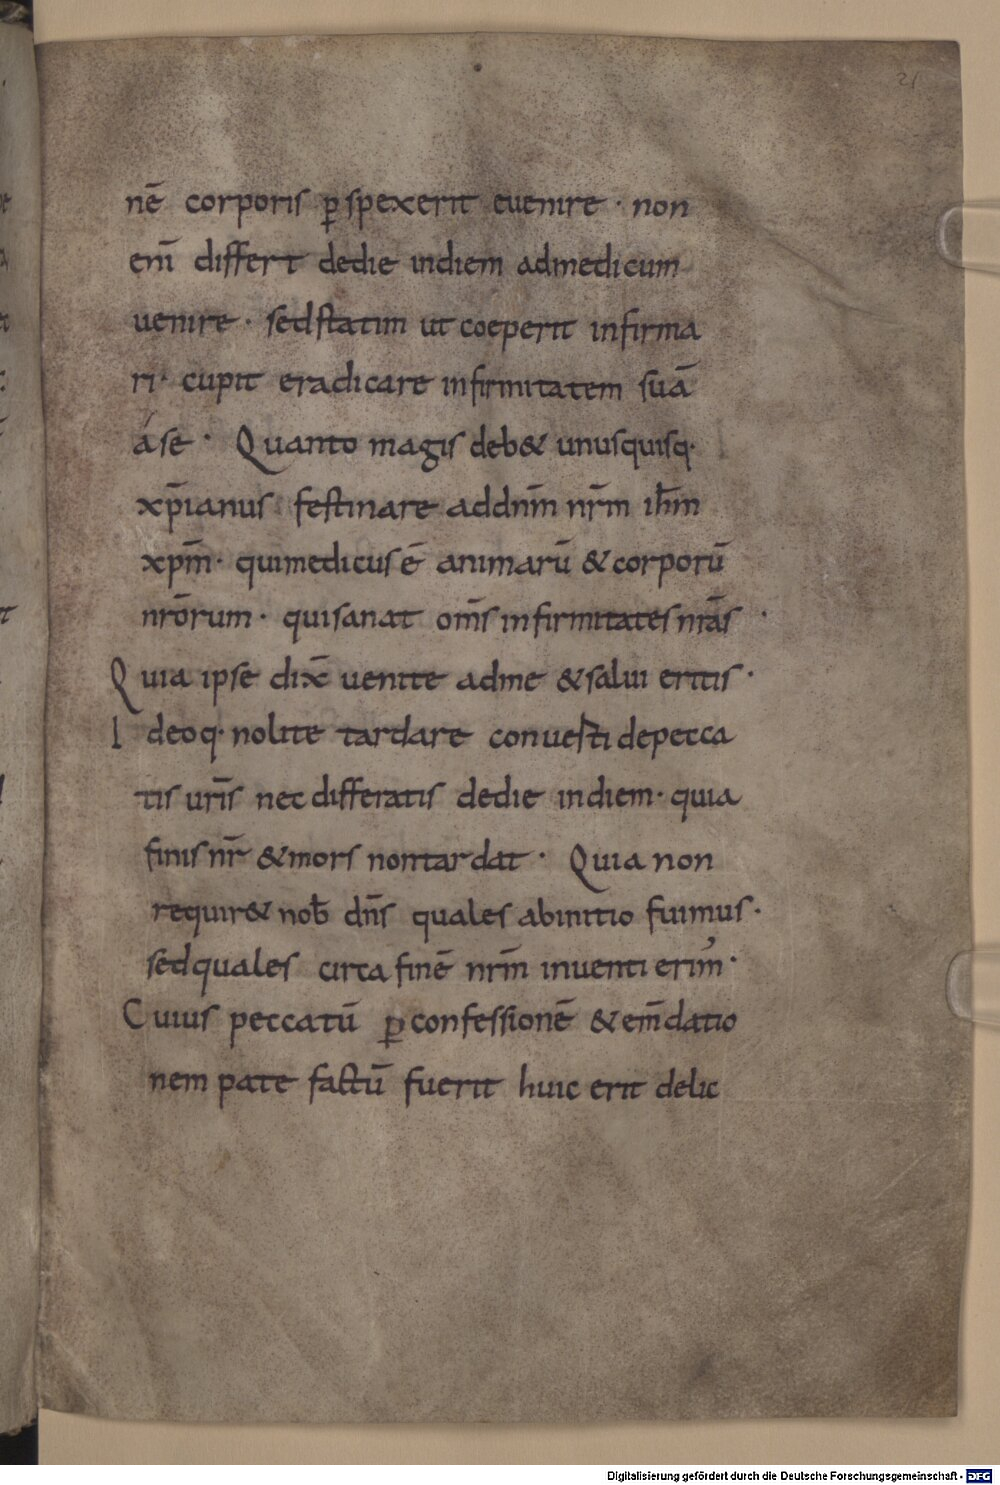 21
nē corporis ꝑspexerit euenire · non
eni̅ differt dedie indiem admedicum
uenire · sedstatim ut coeperit infirma
ri · cupit eradicare infirmitatem suā
áse · Quanto magis deb& unusquisq·
xp̅ianus festinare addnm̅ nr̅m ih̅m
xpm̅ · quimedicus ē animarū & corporū
nro̅rum · quisanat om̅s infirmitates nra̅s ·
Quia ipse dix̅ uenite adme & salui eritis ·
Ideoq· nolite tardare conuesti depecca
tis ur̅is nec differatis dedie indiem · quia
finis nr̅ & mors nontardat · Quia non
requir& nob̅ dn̅s quales abinitio fuimus ·
sedquales circa finē nr̅m inuenti erim᾽ ·
Cuius peccatū ꝑ confessionē & em̅datio
nem pate factū fuerit huic erit delic
Digitalisierung gefördert durch die Deutsche Forschungsgemeinschaft - DFG